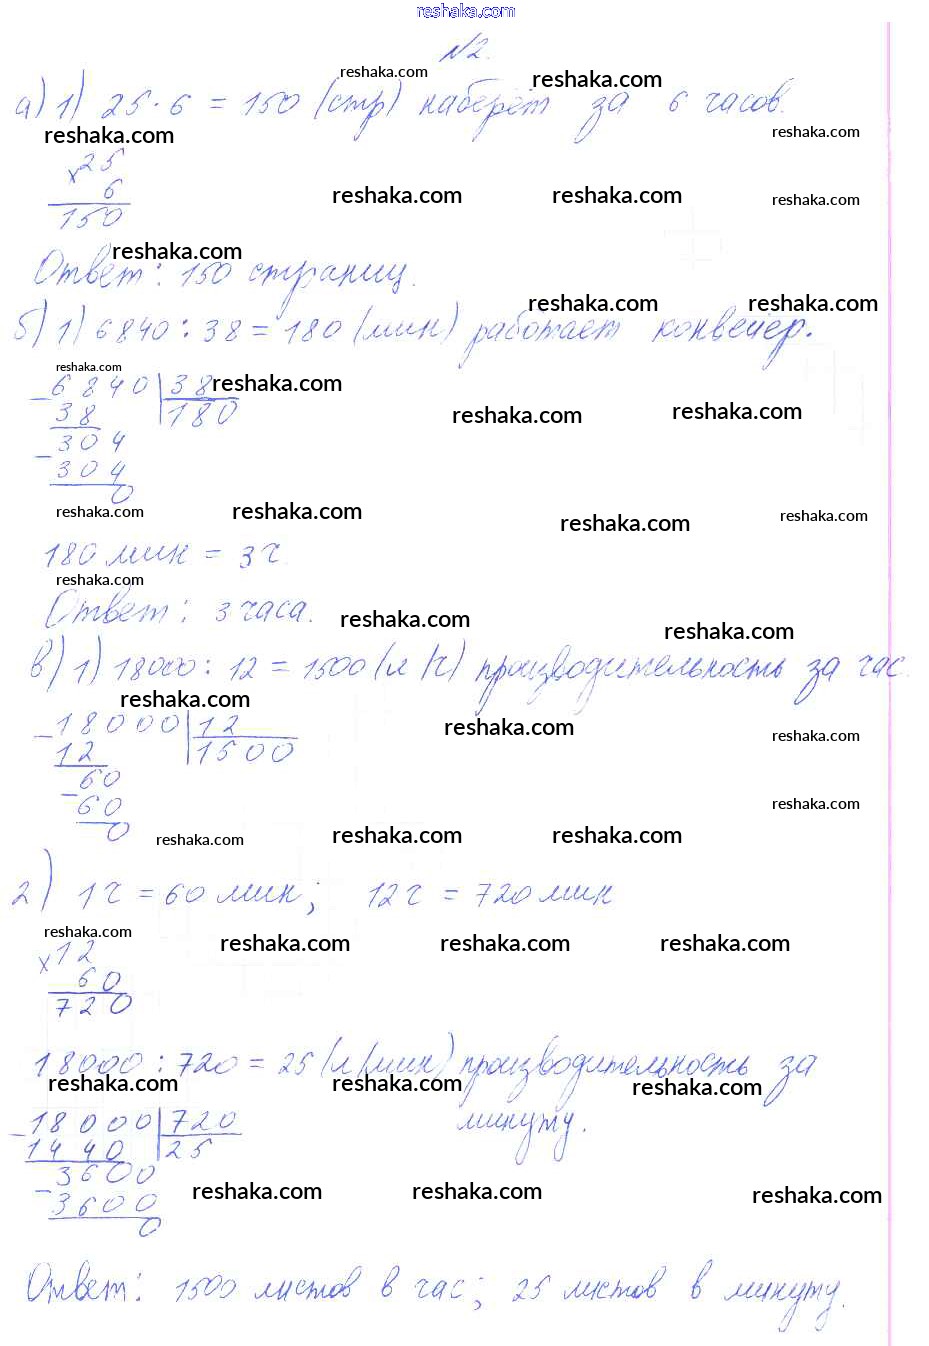 reshaka.com
№2.
reshaka.com reshaka.com
а) 1) 25 · 6 = 150 (стр) наберёт за 6 часов.
reshaka.com reshaka.com
× 25
6
reshaka.com reshaka.com reshaka.com
150
reshaka.com
Ответ: 150 страниц.
reshaka.com reshaka.com
б) 1) 6840 : 38 = 180 (мин) работает конвейер.
reshaka.com reshaka.com
− 6840 | 38
38 | 180
reshaka.com reshaka.com
− 304
304
0
reshaka.com reshaka.com reshaka.com reshaka.com
180 мин = 3 ч.
reshaka.com
Ответ: 3 часа.
reshaka.com reshaka.com
в) 1) 18000 : 12 = 1500 (л/ч) производительность за час.
reshaka.com
− 18000 | 12
reshaka.com reshaka.com
12 | 1500
− 60
60
reshaka.com
0
reshaka.com reshaka.com reshaka.com
2) 1 ч = 60 мин; 12 ч = 720 мин
reshaka.com reshaka.com reshaka.com reshaka.com
× 12
60
720
18000 : 720 = 25 (л/мин) производительность за
reshaka.com reshaka.com reshaka.com
минуту.
− 18000 | 720
1440 | 25
3600
reshaka.com reshaka.com reshaka.com
− 3600
0
Ответ: 1500 листов в час; 25 листов в минуту.